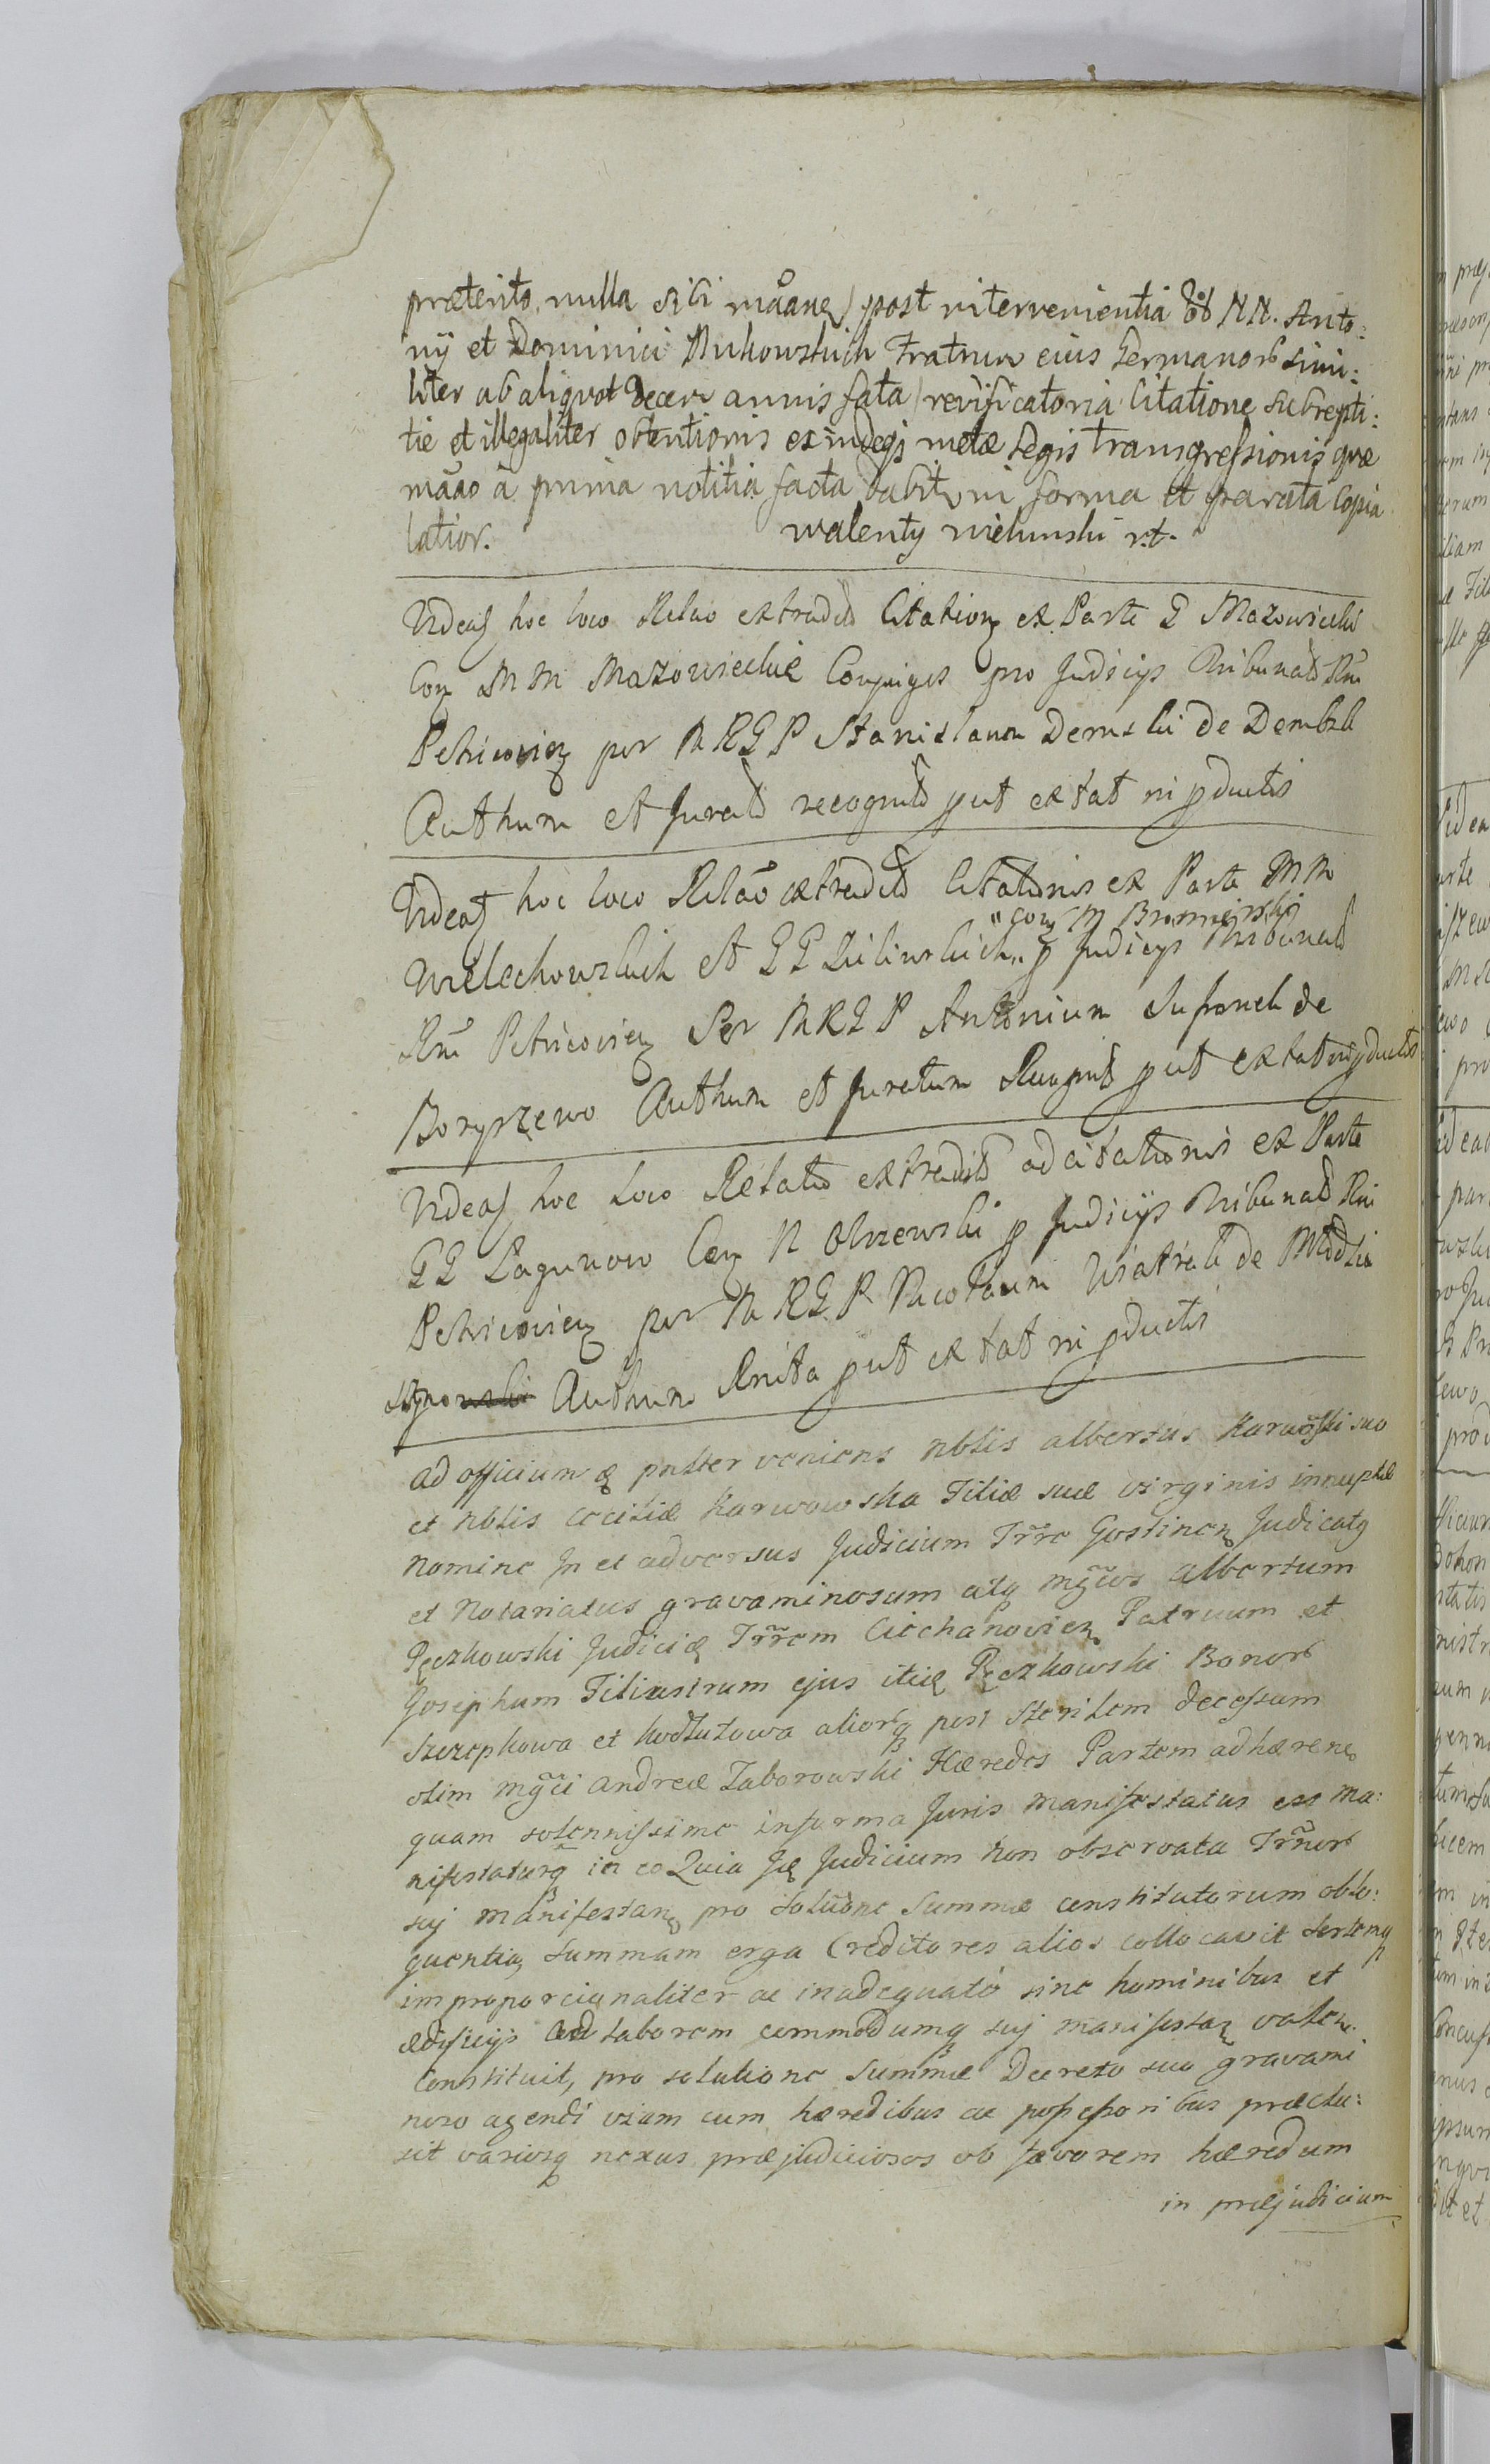 prætento nulla sibi mãane) post intervenientia NN. Anto:
nij et Dominici Bukowskich Fratrum eius Germanorb simi:
liter ab aliqvot decem annis fata revificatoria Citatione subrepti:
tie et illegaliter obtentionis exindeqz metæ Legis transgressionis qvæ
mãao à prima notitia facta dabitur in forma et parata Copia
latior. walenty
Videat hoc loco Relao extradit Citationz ex Parte G Mazowiecki
Conz MM Mazowieckie Conjuges pro Judicijs Tribunalt Rni
Petricovienz per MRGP Stanislaum Demski de Dembsk
Authum et Juratt recognit put extat in pductis
Videat hoc loco Relão extradit Citationis ex Parte MM
" Conz M
Wielechowskich et GG Zieliнskich " p Judicijs Tribunalt
Rni Petricovienz Per MRGP Antonium de
Boryszewo Authum et Juratum Recognit put extat in pductis
Videat hoc loco Relatio extradit adcitationis ex Parte
GG Lagunow Conz N Olszewski p Judicijs Tribunalt Rni
Petricovienz per MRGP Nicolaum Wiatrak de
Authum Rnita put extat in pductis
ad officium q pnster veniens nblis albertus Karwoski suo
et nblis Cecilie Karwowska Filiæ suæ virginis innuptæ
nomine In et adversus Judicium Trre Gostinenz Judicatq
et Notariatus gravaminosum atq mgcos albertum
Pęczkowski Judicię Trrem Ciechanovienz Patruum et
Josephum Filiastrum ejus itię Pęczkowski Bonorb
Szczepkowa et aliorbq post sterilem decessum
olim mgci andreæ Zaborowski Hæredes Partem adhærenę
quam solennissime in forma Juris manifestatus est ma:
nifestaturq in eo Quia Ię Judicium non observata Trnorb
sij manifestanę pro solutione Summæ constitutorum oblo:
quentia summam erga Creditores alios collocavit sortemq
improporcionaliter ac inadequatè sine hominibus et
ædificijs ad laborem commodumq sij manifestanę valen.
Constituit, pro solutione Summæ Decreto suo gravami
noso agendi viam cum hæredibus ac possessoribus præclu:
sit variosq nexus præjudiciosos ob favorem hæredum
in præjudicium